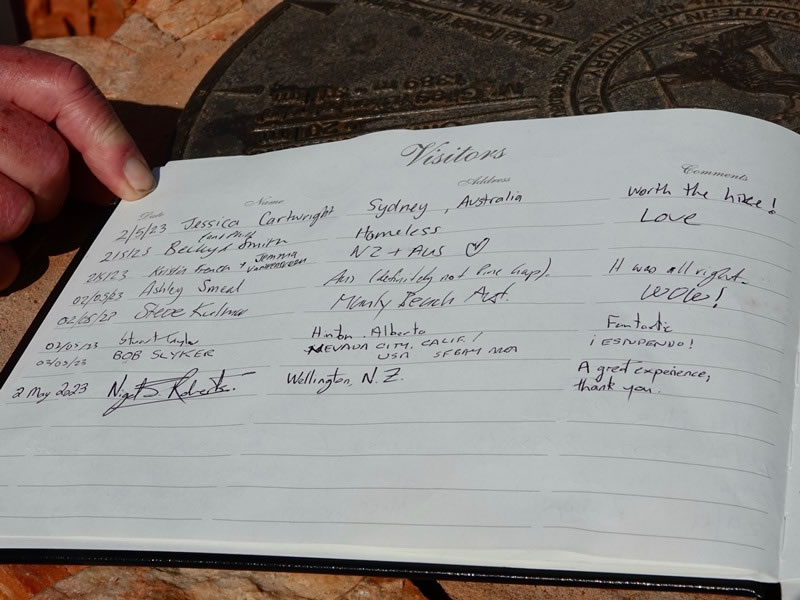 NORTHERN TERRITORY
1389 m
Visitors
Date Name Address Comments
2/5/23 Jessica Cartwright Sydney, Australia Worth the hike!
2/5/23 Becky Smith Homeless Love
2/5/23 Kristin French + Jemma NZ + AUS ♡
02/05/23 Ashley Smeal Aus (definitely not Pine Gap). It was all right.
02/05/23 Steve Manly Beach Aust. WOW!
03/05/23 Stuart Taylor Hinton, Alberta Fantastic
03/05/23 BOB SLYKER NEVADA CITY, CALIF. / ¡ESTUPENDO!
USA
2 May 2023 Nigel S. Roberts. Wellington, N.Z. A great experience;
thank you.